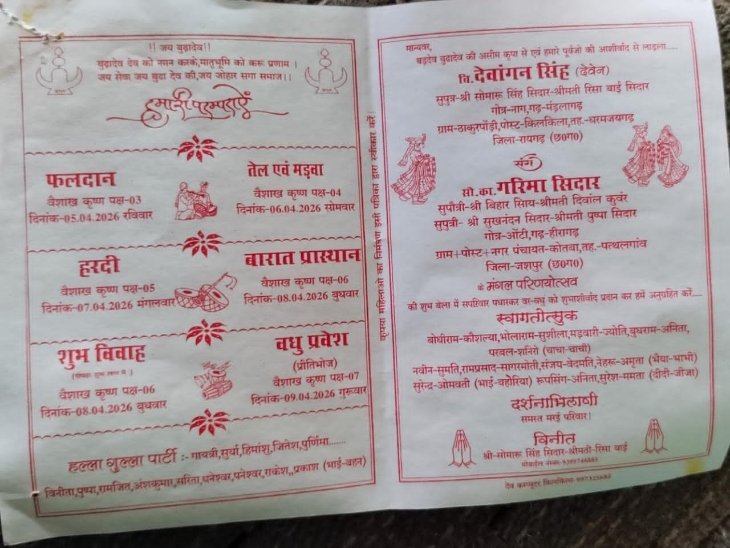 !! जय बुढ़ादेव!!
बुढादेव देव को नमन करके,मातृभूमि को करू प्रणाम ।
जय सेवा जय बुढा देव की,जय जोहार सगा समाज।।
हमारी परम्पराएँ
फलदान
वैशाख कृष्ण पक्ष-03
दिनांक-05.04.2026 रविवार
तेल एवं मड़वा
वैशाख कृष्ण पक्ष-04
दिनांक-06.04.2026 सोमवार
हरदी
वैशाख कृष्ण पक्ष-05
दिनांक-07.04.2026 मंगलवार
बारात प्रास्थान
वैशाख कृष्ण पक्ष-06
दिनांक-08.04.2026 बुधवार
शुभ विवाह
वैशाख कृष्ण पक्ष-06
दिनांक-08.04.2026 बुधवार
वधु प्रवेश
(प्रीतिभोज)
वैशाख कृष्ण पक्ष-07
दिनांक-09.04.2026 गुरूवार
हल्ला गुल्ला पार्टी :- गायत्री,सुर्या,हिमांशु,जितेश,पुर्णिमा......
विनीता,पुष्पा,रामजित,अंशकुमार,सरिता,धनेश्वर,धनेश्वर,राकेश,,प्रकाश (भाई-बहन)
कृपया महिलाओं का निमंत्रण इसी पत्रिका द्वारा स्वीकार करें!
मान्यवर,
बड़देव बुढादेव की असीम कृपा से एवं हमारे पूर्वजो की आशीर्वाद से लाड़ला....
चि.देवांगन सिंह (देवेन)
सुपुत्र-श्री सोमारू सिंह सिदार-श्रीमती रिसा बाई सिदार
गोत्र-नाग,गढ़-मंडलागढ़
ग्राम-ठाकुरपोड़ी,पोस्ट-किलकिला,तह.-धरमजयगढ़
जिला-रायगढ़ (छ0ग0)
संग
सौ.का.गरिमा सिदार
सुपौत्री-श्री बिहार सिाय-श्रीमती दिवांल कुवंर
सुपुत्री- श्री सुखनंदन सिदार-श्रीमती पुष्पा सिदार
गोत्र-ओंटी,गढ़-हीरागढ़
ग्राम+पोस्ट+नगर पंचायत-कोतबा,तह.-पत्थलगांव
जिला-जशपुर (छ0ग0)
के मंगल परिणयोत्सव
की शुभ बेला में सपरिवार पधारकर वर-वधु को शुभाशीर्वाद प्रदान कर हमें अनुग्रहित करें....
स्वागतोत्सुक
बोधीराम-कौशल्या,भोलाराम-सुशीला,मड़वारी-ज्योति,बुधराम-अनिता,
परवल-शनिरो (चाचा-चाची)
नवीन-सुमति,रामप्रसाद-सागरमोती,संजय-वेदमति,नेहरू-अमृता (भैया-भाभी)
सुरेन्द्र-ओमवती (भाई-बहोरिया) रूपसिंग-अनिता,सुरेश-ममता (दीदी-जीजा)
दर्शनाभिलाषी
समस्त मरई परिवार!
विनीत
श्री-सोमारू सिंह सिदार-श्रीमती-रिसा बाई